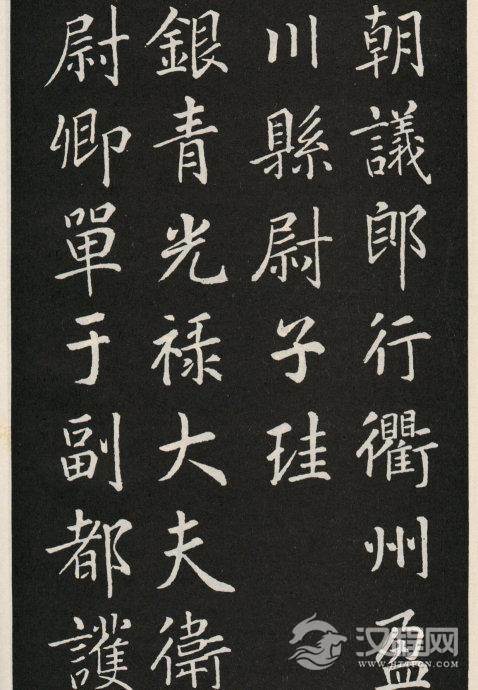 朝議郎行衢州盈
川縣尉子珪
銀青光祿大夫衛
尉卿單于副都護
汉程网
WWW.HTTPCN.COM